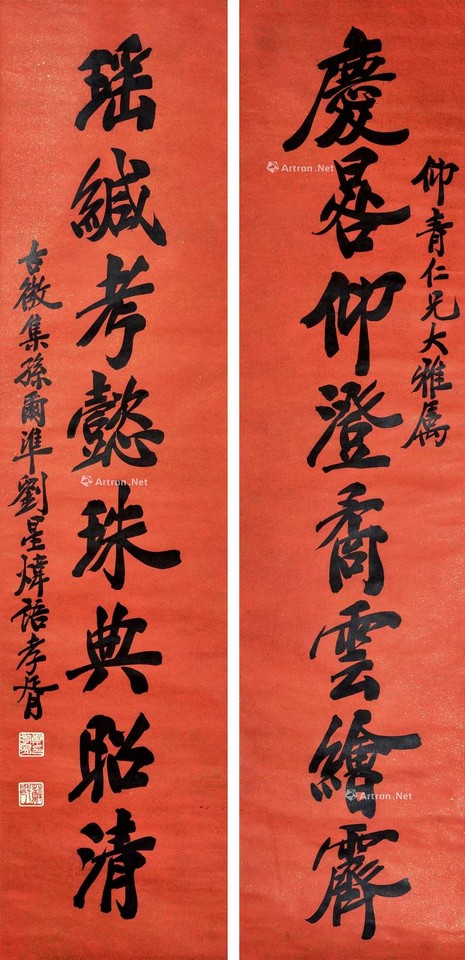 仰青仁兄大雅属
慶晷仰澄矞雲繪霽
瑶緘考懿珠典昭清
古微集孫爾準劉星煒語孝胥
Artron.Net
Artron.Net
Artron.Net